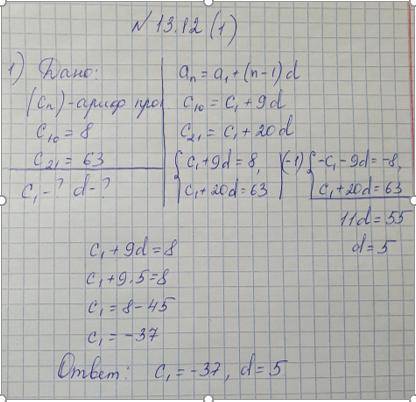 № 13.12 (1)
1) Дано:
(cₙ) - ариф про
c₁₀ = 8
c₂₁ = 63
c₁ - ? d - ?
aₙ = a₁ + (n-1)d
c₁₀ = c₁ + 9d
c₂₁ = c₁ + 20d
{ c₁ + 9d = 8, | (-1) { -c₁ - 9d = -8,
{ c₁ + 20d = 63 { c₁ + 20d = 63
11d = 55
d = 5
c₁ + 9d = 8
c₁ + 9·5 = 8
c₁ = 8 - 45
c₁ = -37
Ответ: c₁ = -37, d = 5